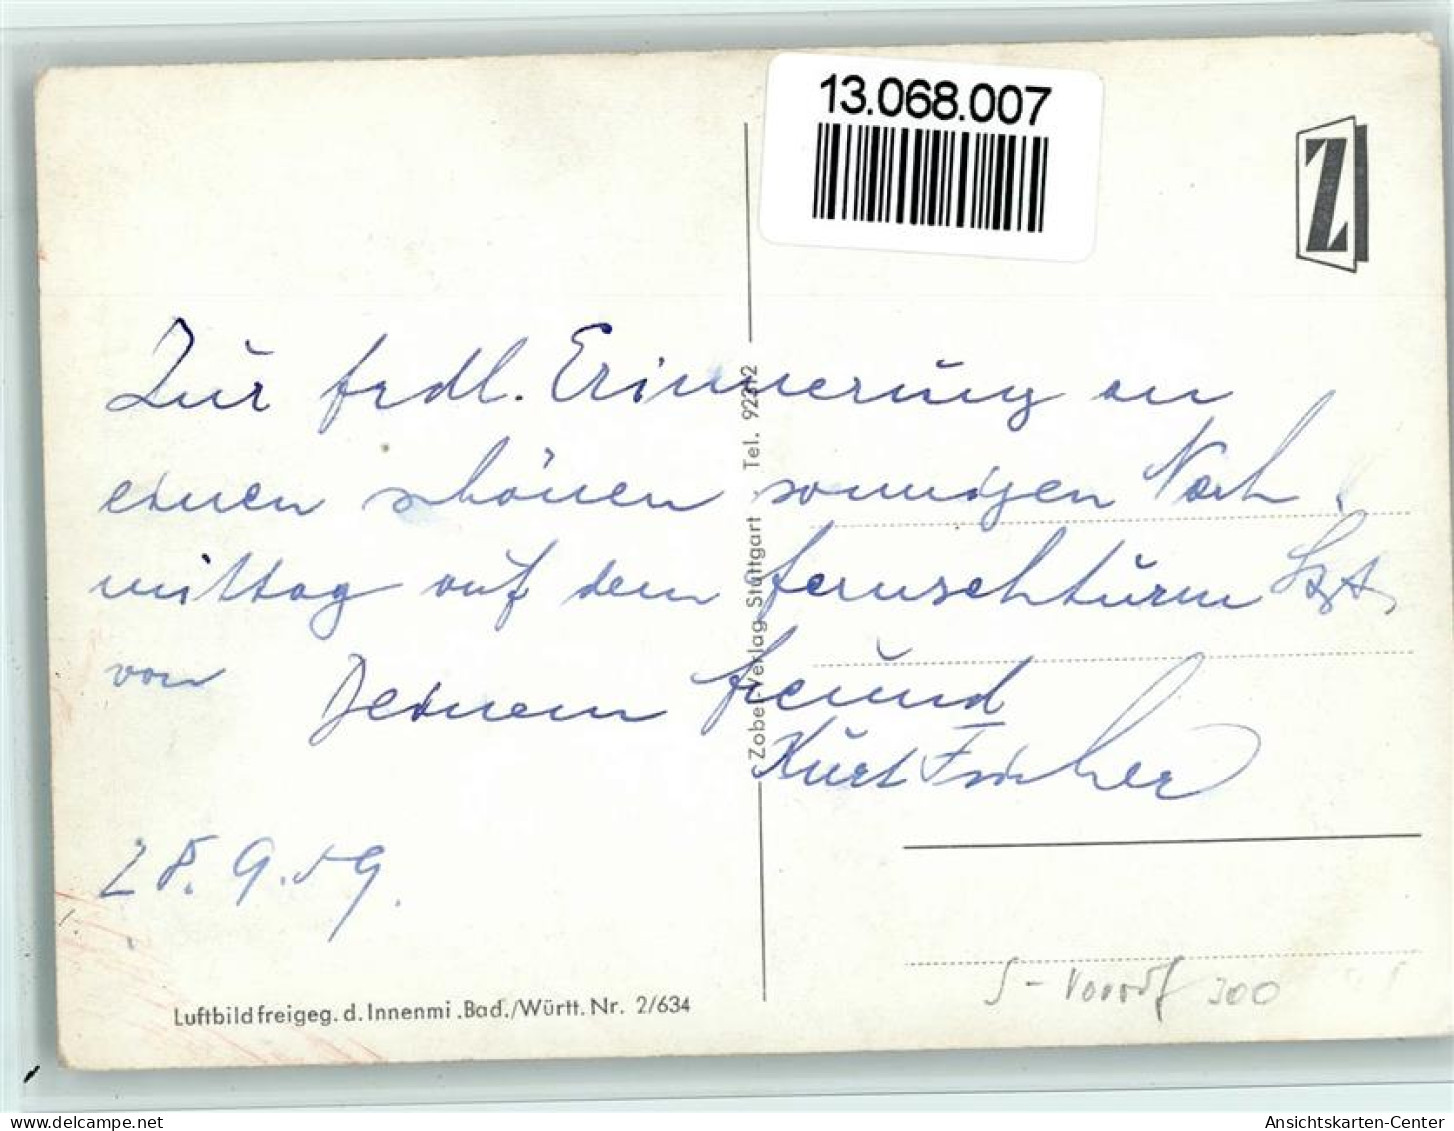 13.068.007
Z
Zur frdl. Erinnerung an
einen schönen sonnigen Nach-
mittag auf dem Fernsehturm Stgt.
von Deinem Freund
Kurt Fischer
28.9.59.
Zobel-Verlag Stuttgart Tel. 92312
Luftbild freigeg. d. Innenmi .Bad./Württ. Nr. 2/634
S - 300
Ansichtskarten-Center